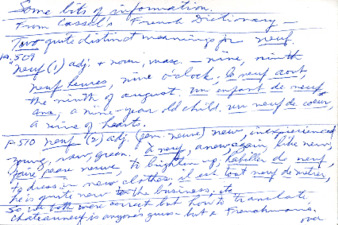 Some bits of information.
From Cassel's French Dictionary —
Two quite distinct meanings for neuf.
p. 509
neuf (1) adj. + noun, masc. — nine, ninth
neuf heures, nine o'clock. le neuf août
the ninth of august. un enfant de neuf
ans, a nine-year old child. un neuf de coeur,
a nine of hearts.
p 510 neuf (2) adj. (fem. neuve) new, inexperienced
young, raw, green, à neuf, anew, again like new,
faire peau neuve, to brighten up, habiller de neuf,
to dress in new clothes. il est tout neuf
he is quite new to the business, etc
So both were correct but how to translate
chateauneuf is anyone's guess but a Frenchman's
over